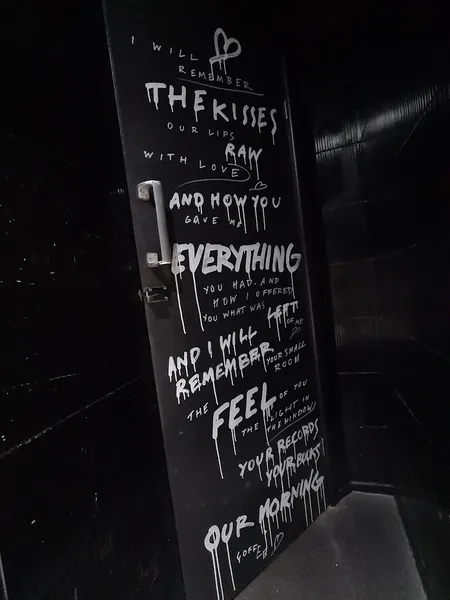 I WILL
REMEMBER
THE KISSES
OUR LIPS
RAW
WITH LOVE
AND HOW YOU
GAVE ME
EVERYTHING
YOU HAD. AND
HOW I OFFERED
YOU WHAT WAS
LEFT
OF ME
AND I WILL
REMEMBER
YOUR SMALL
ROOM
THE
FEEL
OF YOU
THE LIGHT IN
THE WINDOW
YOUR RECORDS
YOUR BOOKS!
OUR MORNING